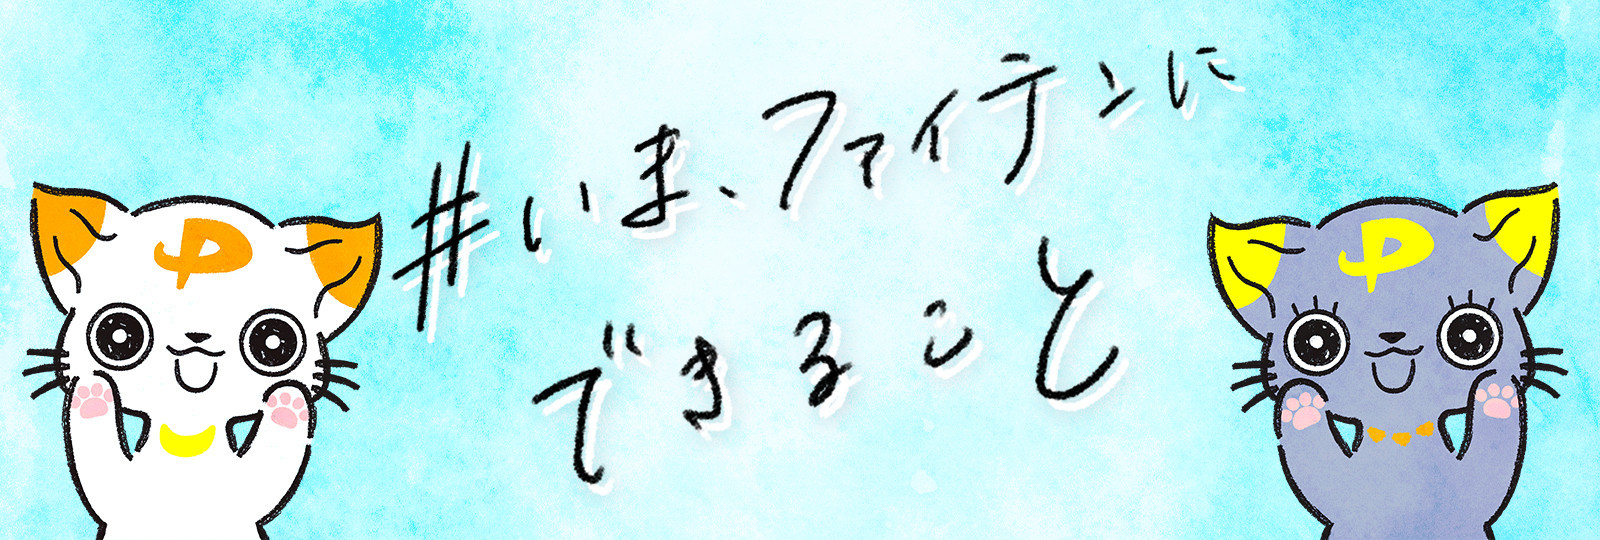 #いま、ファイテンに
できること